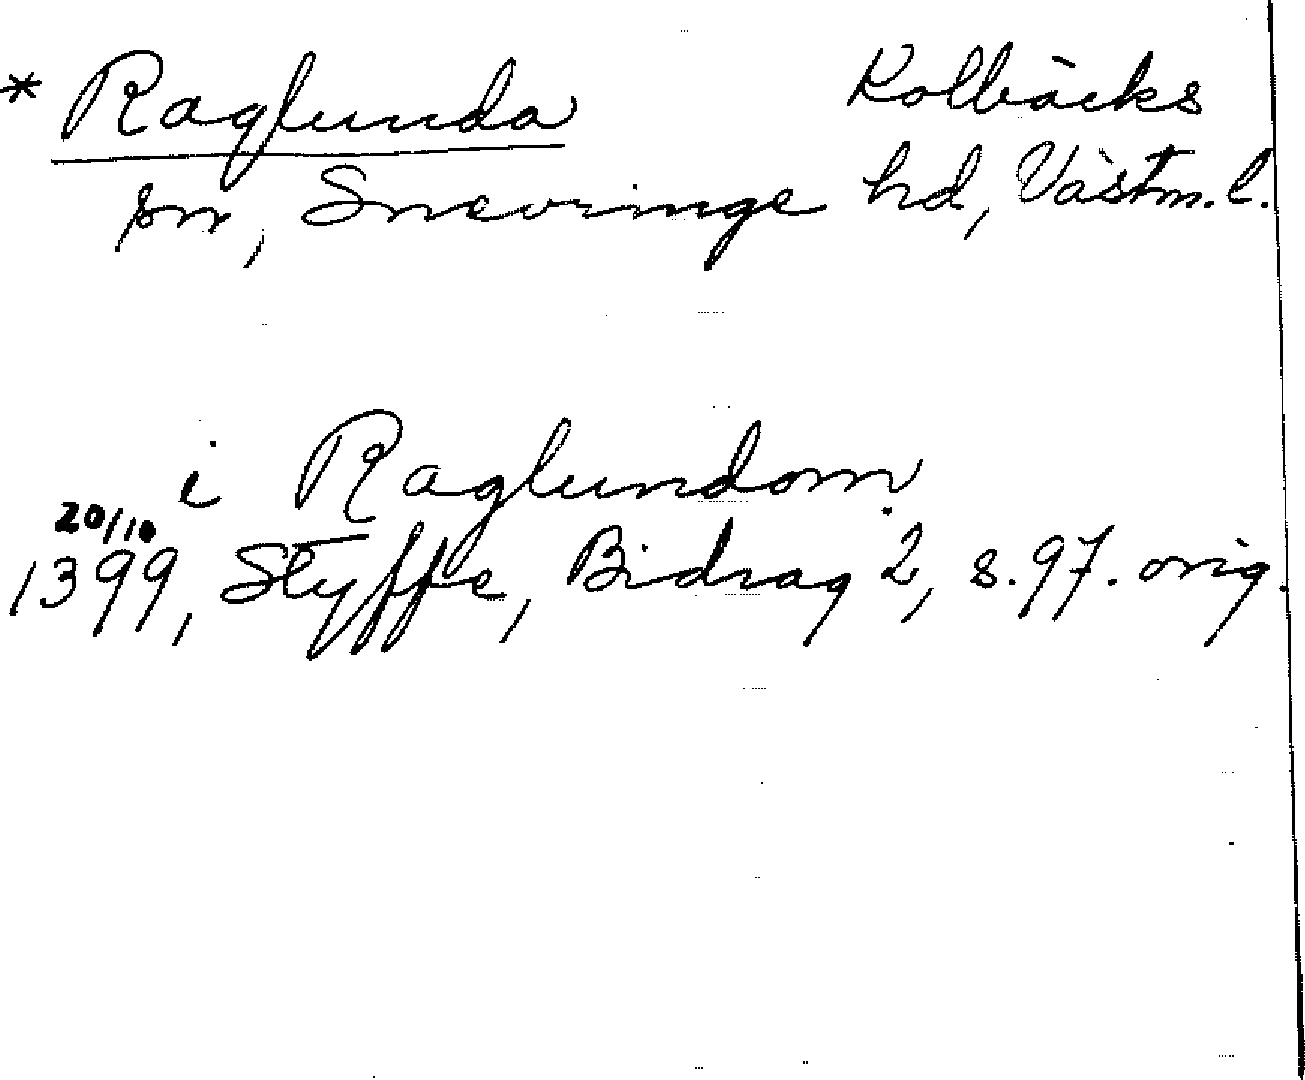 * Raglunda Kolbäcks
sn, Snevringe hd, Västm. l.
i Raglundom
20/10
1399, Styffe, Bidrag 2, s. 97. orig.